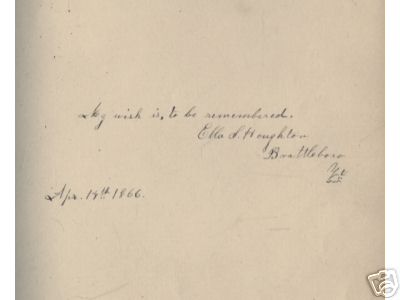 My wish is, to be remembered.
Ella S. Houghton
Brattleboro
Vt.
Apr. 14th 1866.